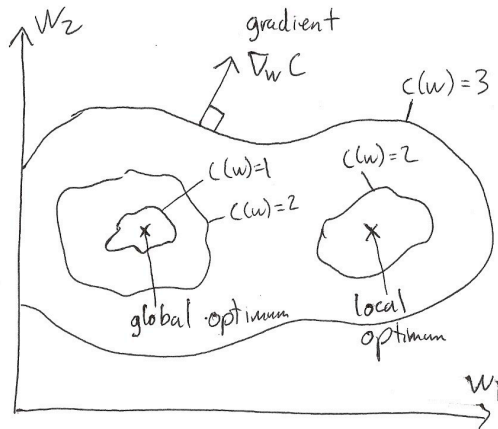 W₂
gradient
∇_W C
C(W)=3
C(W)=1
C(W)=2
C(W)=2
global optimum
local
optimum
W₁